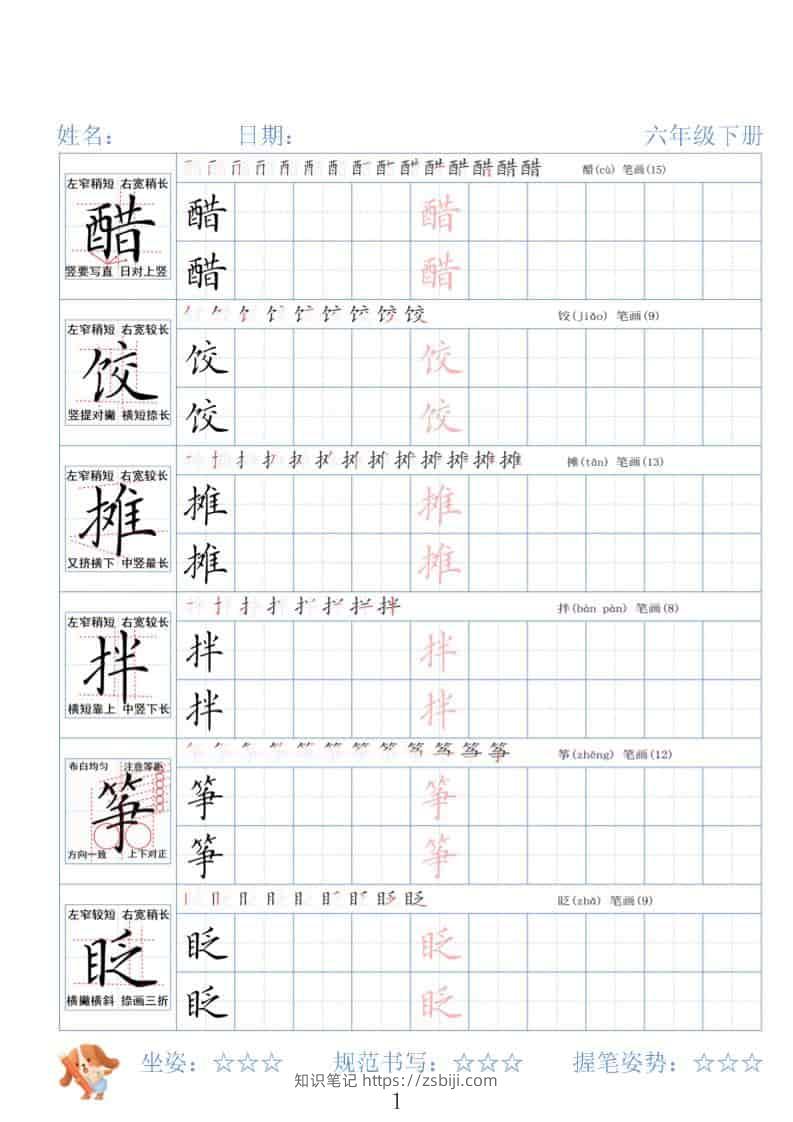 姓名： 日期： 六年级下册
醋(cù) 笔画(15)
左窄稍短 右宽稍长
醋
竖要写直 日对上竖
醋 醋
醋 醋
饺(jiǎo) 笔画(9)
左窄稍短 右宽较长
饺
竖提对撇 横短捺长
饺 饺
饺 饺
摊(tān) 笔画(13)
左窄稍短 右宽较长
摊
又挤横下 中竖最长
摊 摊
摊 摊
拌(bàn pàn) 笔画(8)
左窄稍短 右宽较长
拌
横短靠上 中竖下长
拌 拌
拌 拌
筝(zhēng) 笔画(12)
布白均匀 注意等距
筝
方向一致 上下对正
筝 筝
筝 筝
眨(zhǎ) 笔画(9)
左窄较短 右宽稍长
眨
横撇横斜 捺画三折
眨 眨
眨 眨
坐姿：☆☆☆ 规范书写：☆☆☆ 握笔姿势：☆☆☆
知识笔记 https://zsbiji.com
1